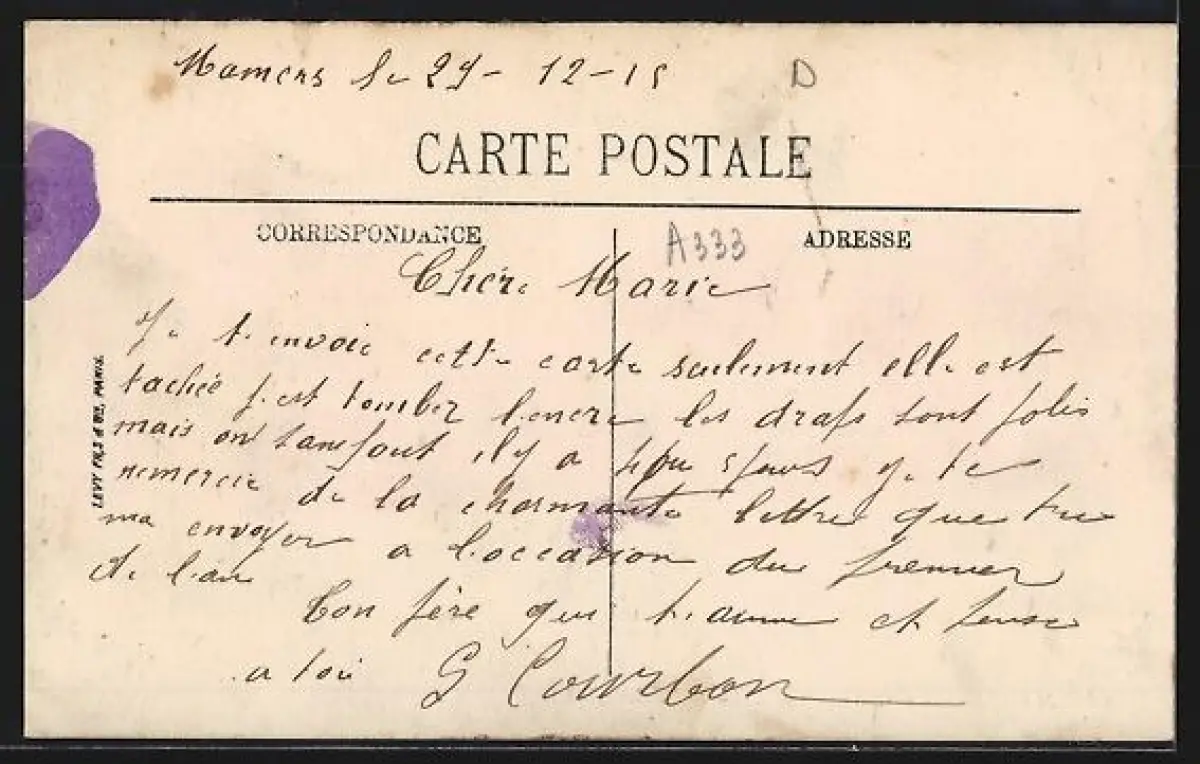 Mamers le 29-12-15
D
CARTE POSTALE
CORRESPONDANCE
A333
ADRESSE
Chére Marie
Je t'envoie cette carte seulement elle est
tachée s'est tomber l'encre les draps sont jolis
mais on sanfout il y a jours je te
remercie de la charmante lettre que tu
ma envoyer a l'occasion du premier
de l'an
Ton père qui t'aime et pense
a toi G Courbon
LEVY FILS & CIE, PARIS.